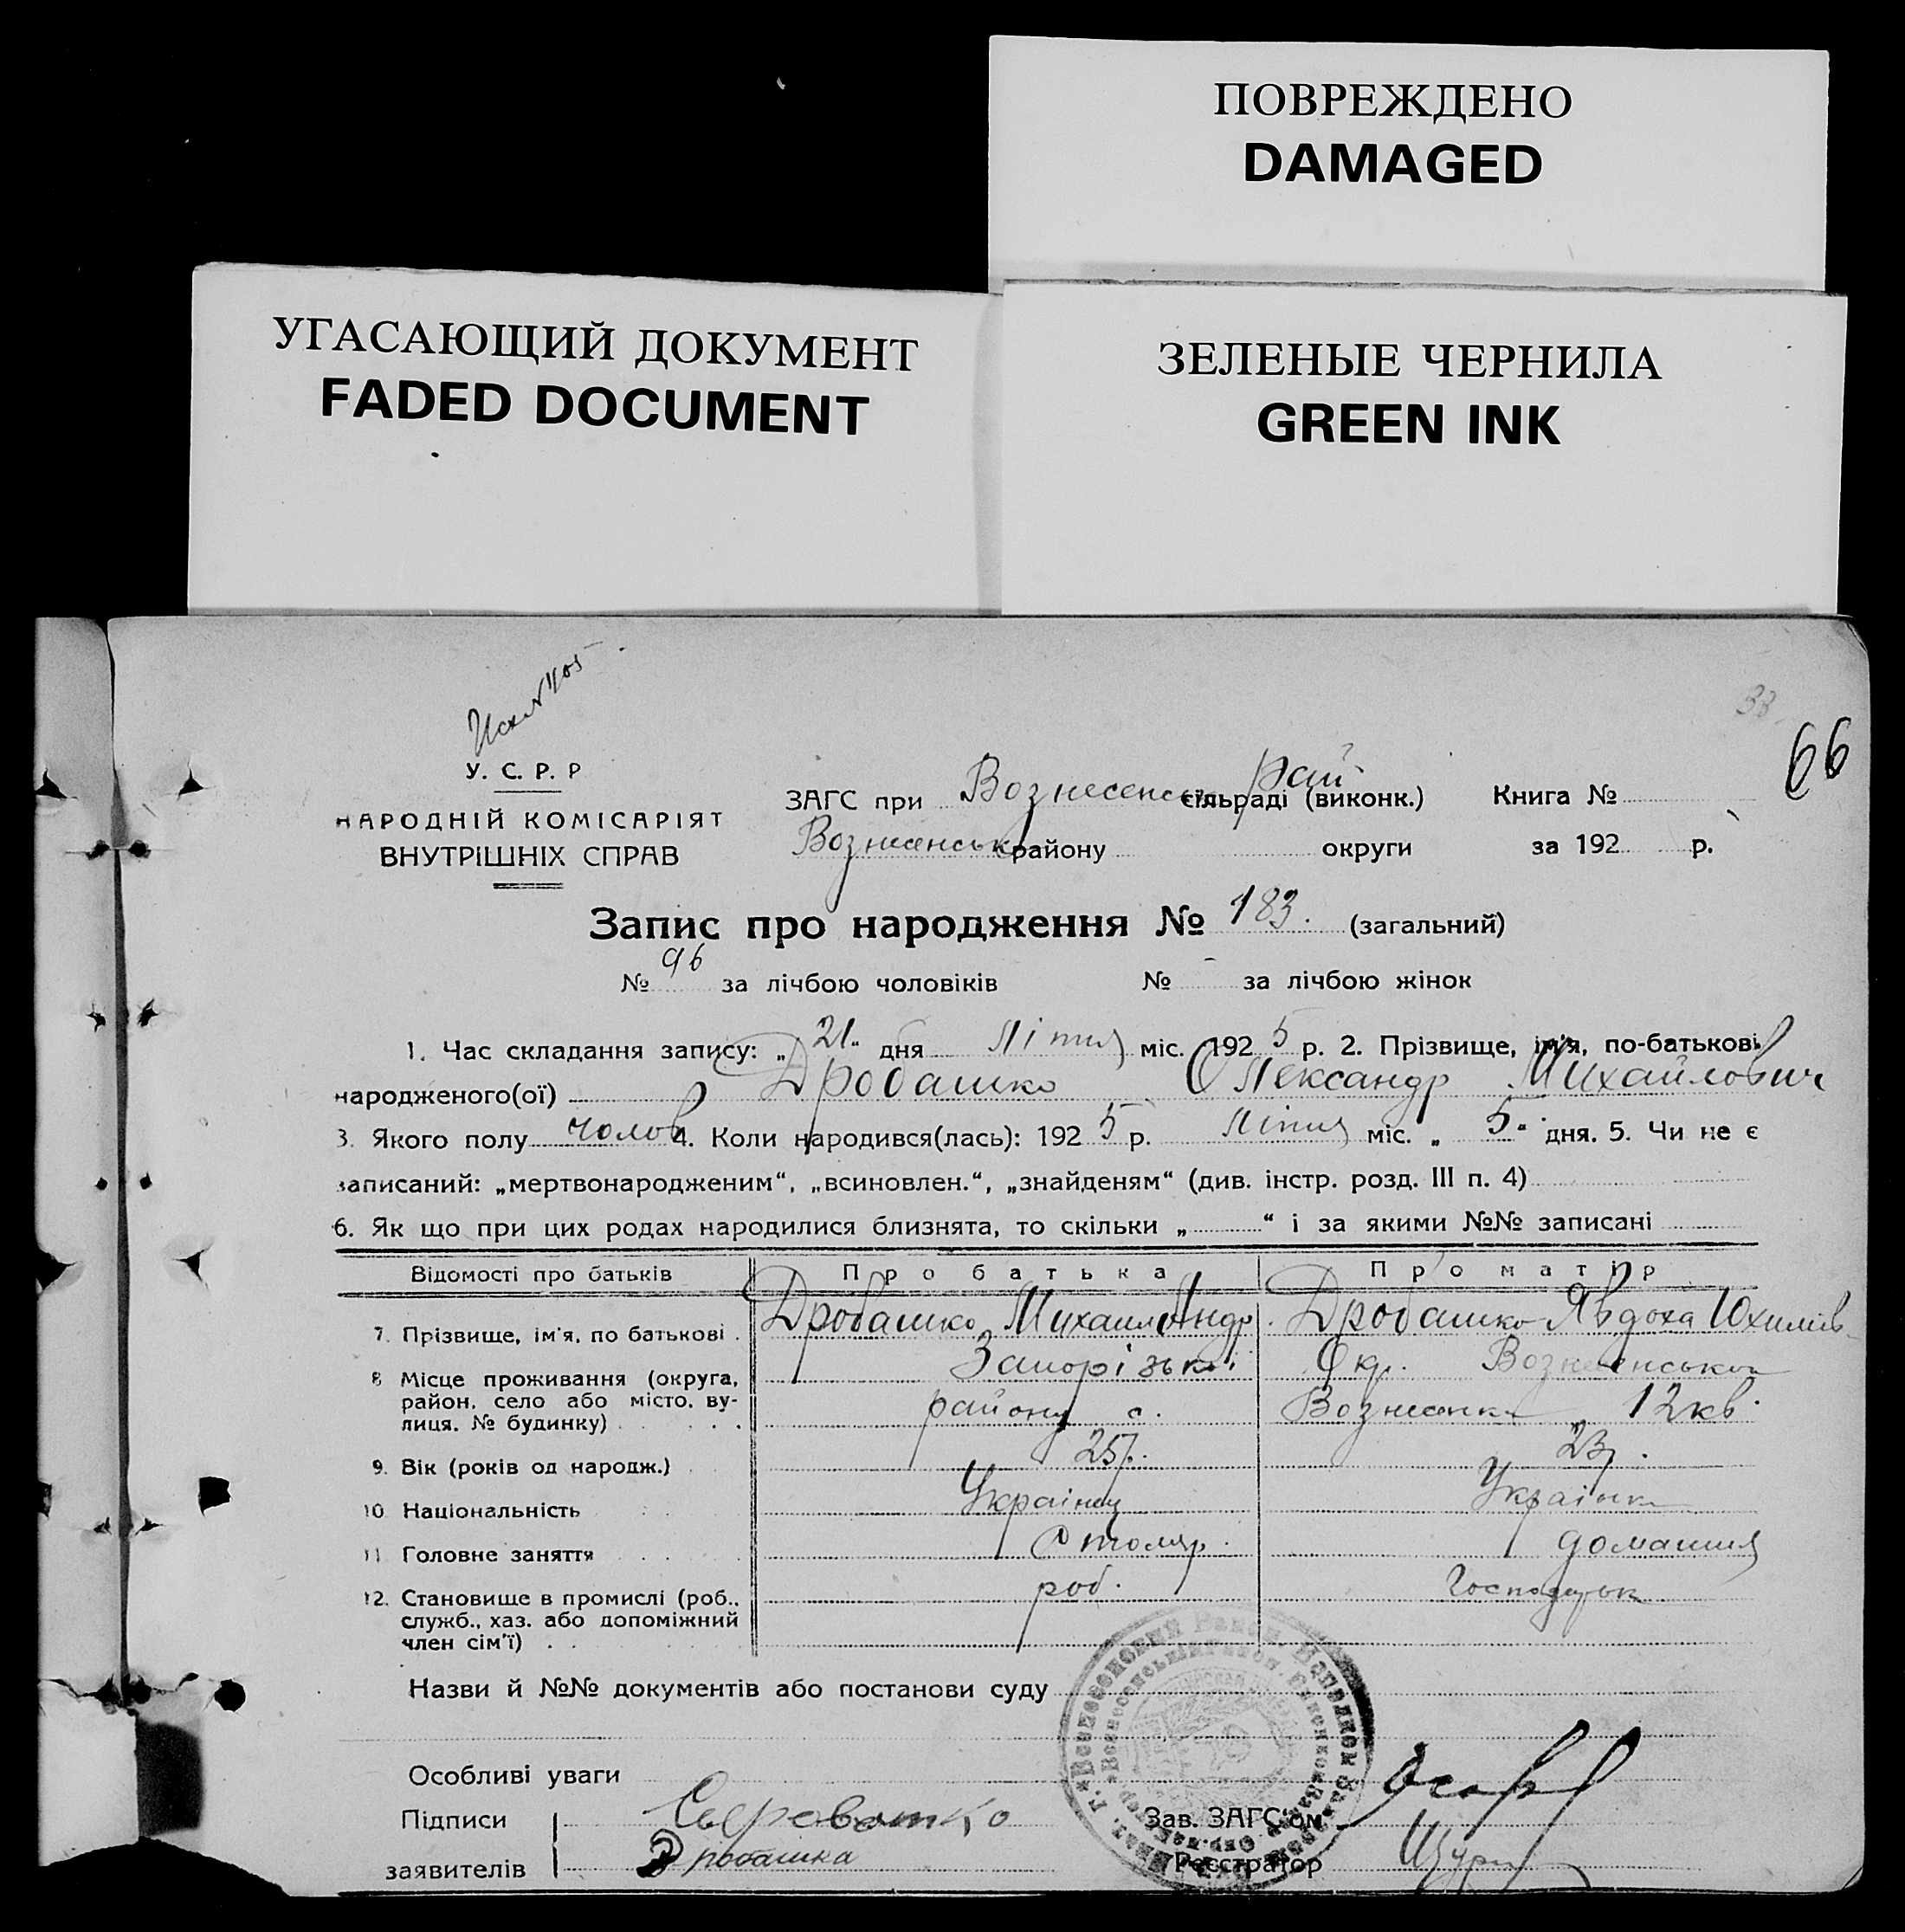 ПОВРЕЖДЕНО
DAMAGED
УГАСАЮЩИЙ ДОКУМЕНТ
FADED DOCUMENT
ЗЕЛЕНЫЕ ЧЕРНИЛА
GREEN INK
38
66
У. С. Р. Р
НАРОДНІЙ КОМІСАРІЯТ
ВНУТРІШНІХ СПРАВ
рай
ЗАГС при Вознесенськ сільраді (виконк.) Книга №
району округи за 192 р.
Запис про народження № 183. (загальний)
№ 96 за лічбою чоловіків № - за лічбою жінок
1. Час складання запису: „21“ дня Літня міс. 1925 р. 2. Прізвище, ім'я, по-батькові
народженого(ої) Дробашко Олександр Михайлович
3. Якого полу чолов 4. Коли народився(лась): 1925 р. Літня міс. „5“ дня. 5. Чи не є
записаний: „мертвонародженим“, „всиновлен.“, „знайденям“ (див. інстр. розд. III п. 4)
6. Як що при цих родах народилися близнята, то скільки „ “ і за якими №№ записані
Відомості про батьків Про батька Про матір
7. Прізвище, ім'я, по батькові Дробашко Михаил Андр. Дробашко Явдоха Юхимів
8 Місце проживання (округа, Запорізької Окр.
район, село або місто, ву- району с. 12 кв.
лиця, № будинку)
9. Вік (років од народж.) 25 р. 23 р.
10 Національність Українец Українка
11 Головне заняття Столяр. домашня
12. Становище в промислі (роб., роб.
служб., хаз. або допоміжний
член сім'ї)
Назви й №№ документів або постанови суду
Особливі уваги
Підписи
заявителів Дробашка
Зав. ЗАГС'ом
Реєстратор